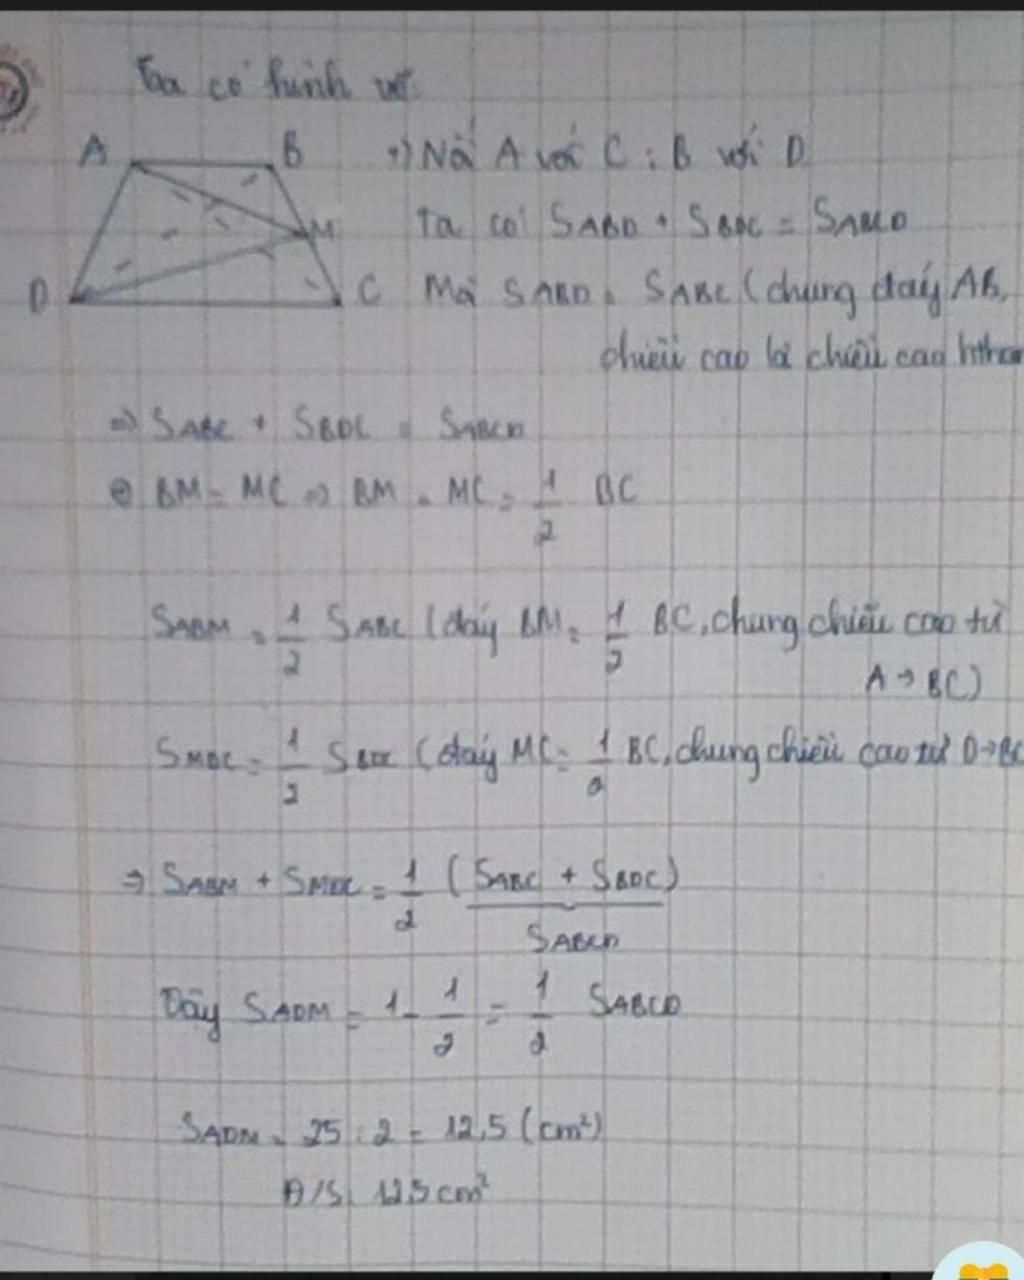 Ta có hình vẽ
A
B
+) Nối A với C ; B với D
M
Ta có SABD + SBDC = SABCD
D
C
Mà SABD = SABC (chung đáy AB,
chiều cao là chiều cao hthan
=> SABC + SBDC = SABCD
BM = MC => BM = MC = 1/2 BC
SABM = 1/2 SABC (đáy BM = 1/2 BC, chung chiều cao từ
A → BC)
SMDC = 1/2 SBDC (đáy MC = 1/2 BC, chung chiều cao từ D → BC
=> SABM + SMDC = 1/2 (SABC + SBDC)
SABCD
Vậy SADM = 1 - 1/2 = 1/2 SABCD
SADM = 25 : 2 = 12,5 (cm²)
Đ/S: 12,5 cm²